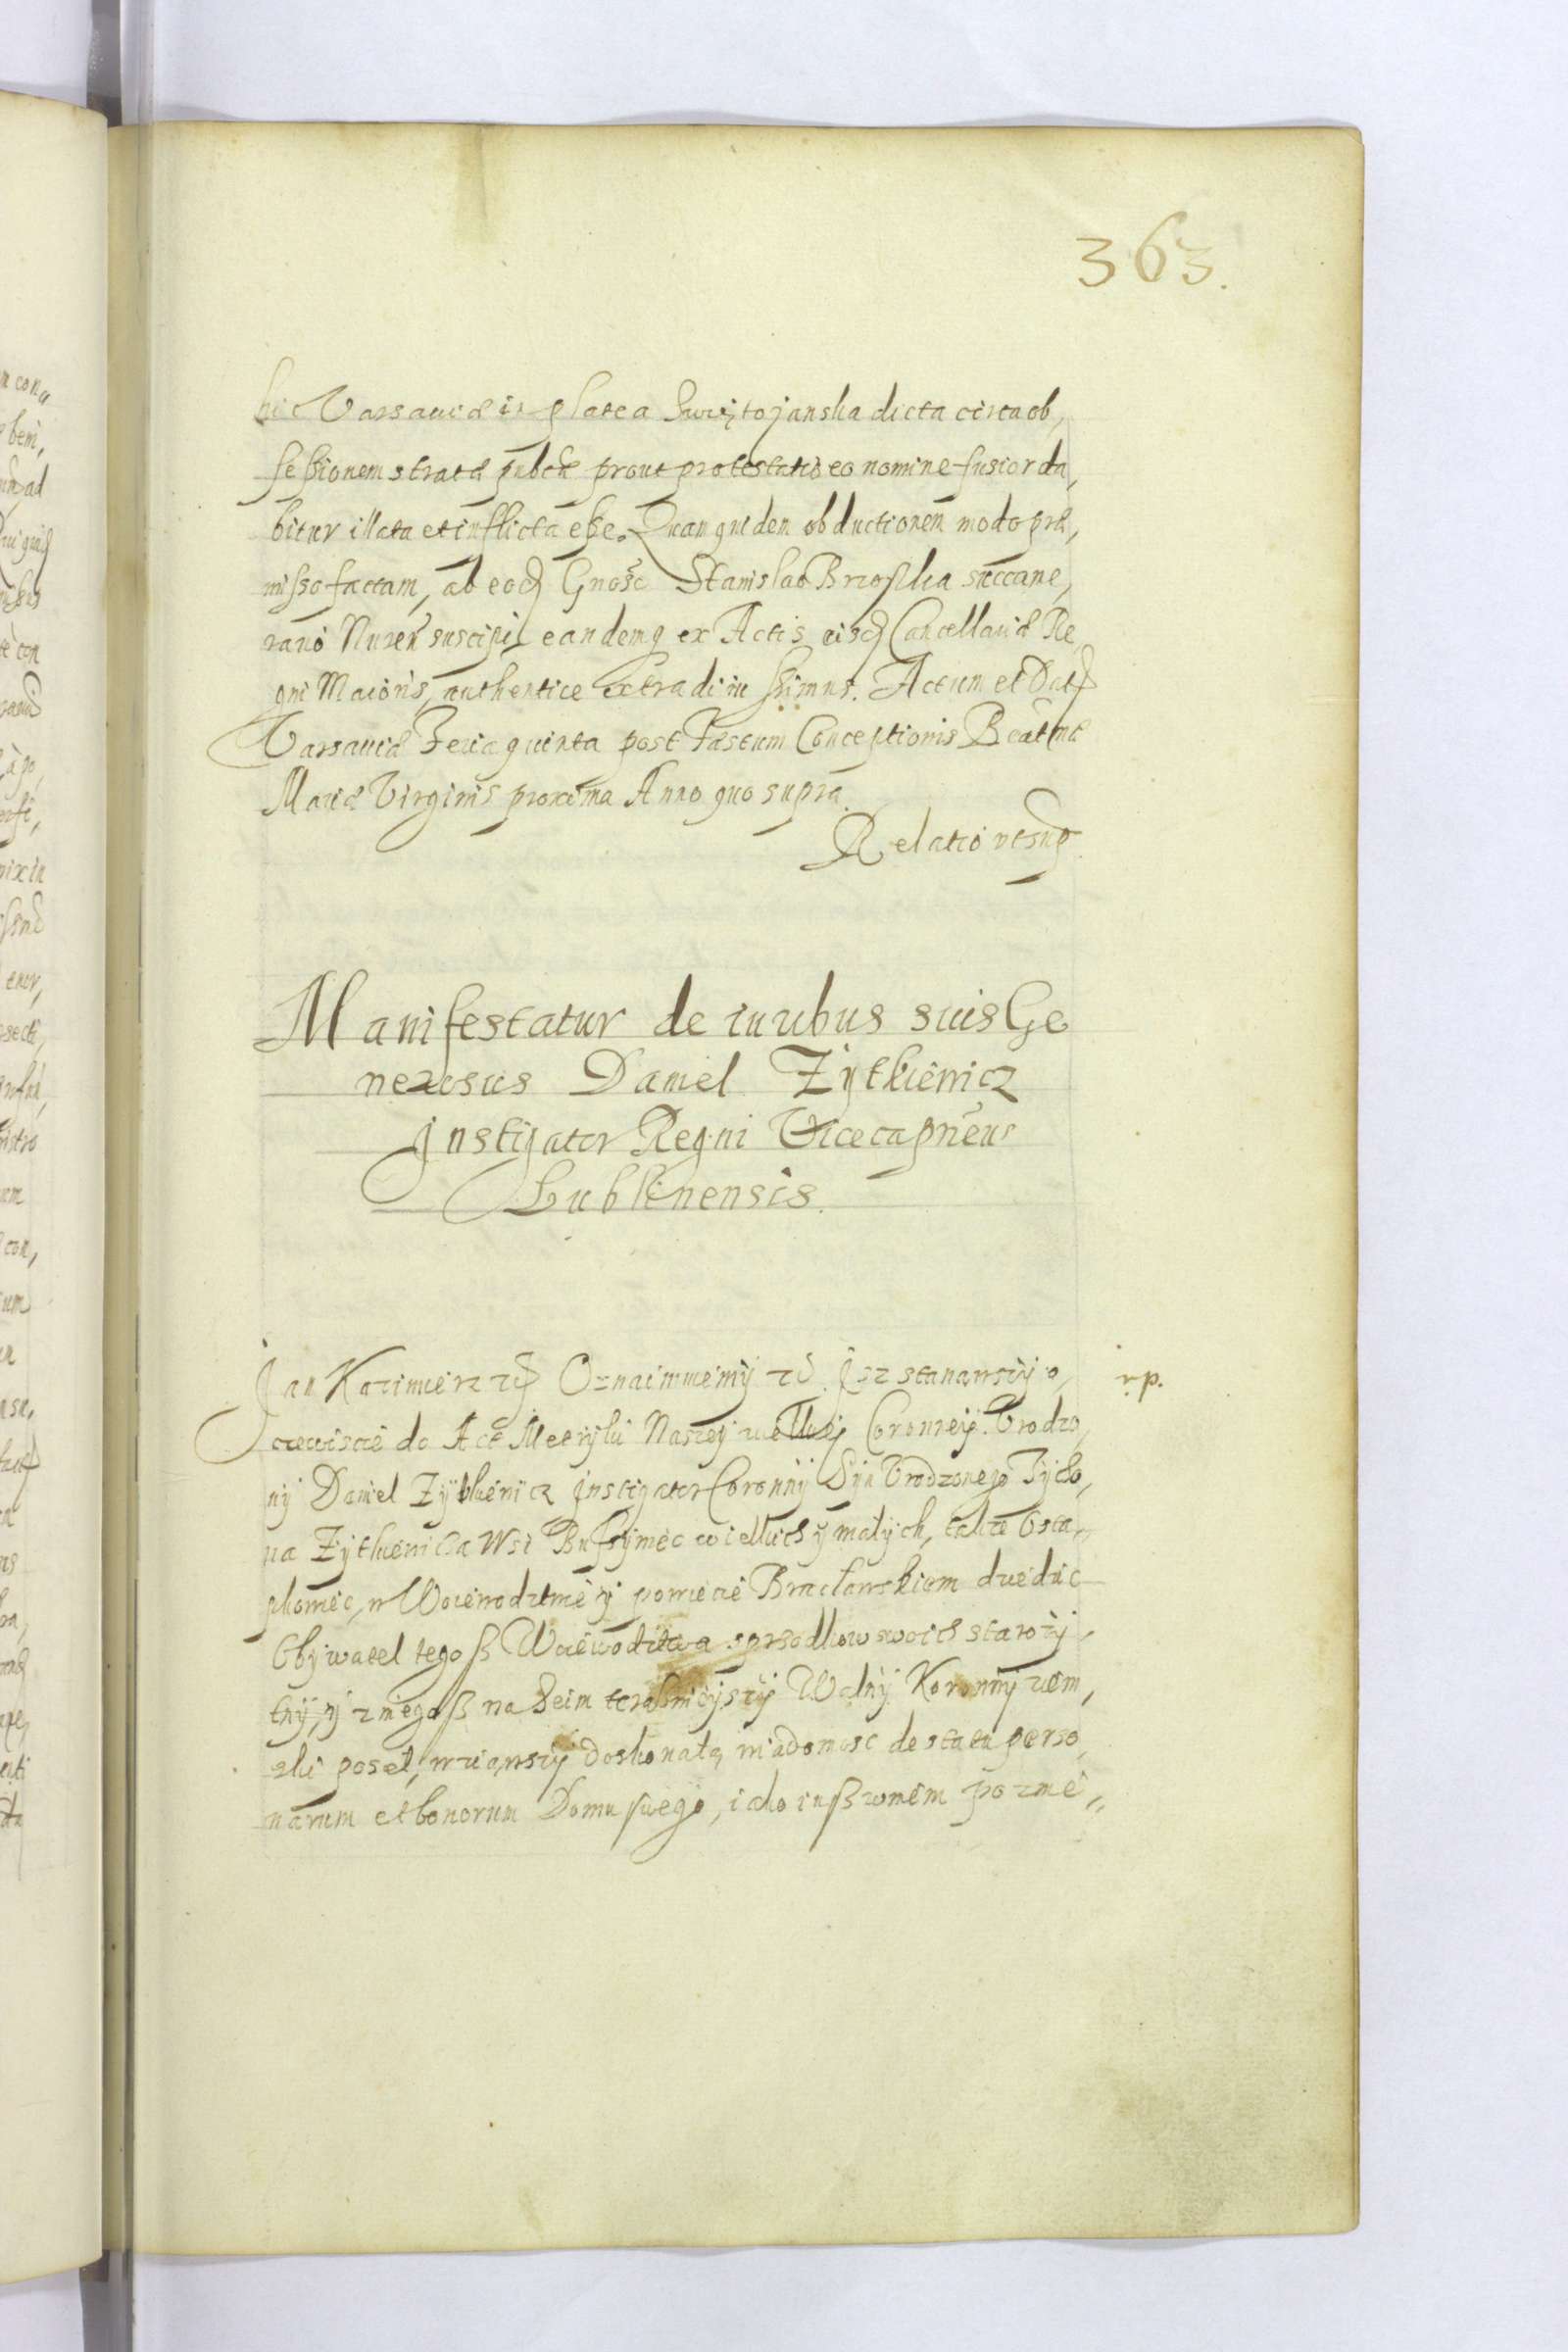 363.
hic Varsaviæ in platea Swiętojanska dicta circa ob,
sessionem stratæ publcæ prout protestatio eo nomine fusior da,
bitur illata et inflicta esse. Quam quidem obductionem modo præ,
misso factam, ab eod Gnoso Stanislao Brzoska succame,
rario Nuren suscipi eandemq ex Actis eisd Cancellariæ Re
gni Maioris, authentice extradi iussimus. Actum et Dat
Varsaviæ Feria quinta post Festum Conceptionis Beatmæ
Mariæ Virginis proxima Anno quo supra.
Relatio ut sup
Manifestatur de iuribus suis Ge
nerosus Daniel Zytkiewicz
Instigator Regni Vicecapneus
Lublinensis.
Jan Kazimierz Oznaimuiemy Isz stanąwszy o,
czewiscie do Act Metryki Naszey wielkiej Coronneÿ. Urodzo,
ny Daniel Zytkiewicz Instigator Coronny Syn Urodzonego Tycho,
na Zytkiewicza Wsi wielkich y małych, takze Osta,
w Woiewodztwie y powiecie Bracławskiem dziedzic
Obywatel tegoß Woiewodztwa sprzodkow swoich staroży,
tny, y zniegoß na Seim teraßnieyszy Walny Koronny ziem,
ski poseł, wziąwszy doskonałą wiadomosc de statu perso,
narum et bonorum Domu swego, iako iuß wniem pozmie,,
rp.